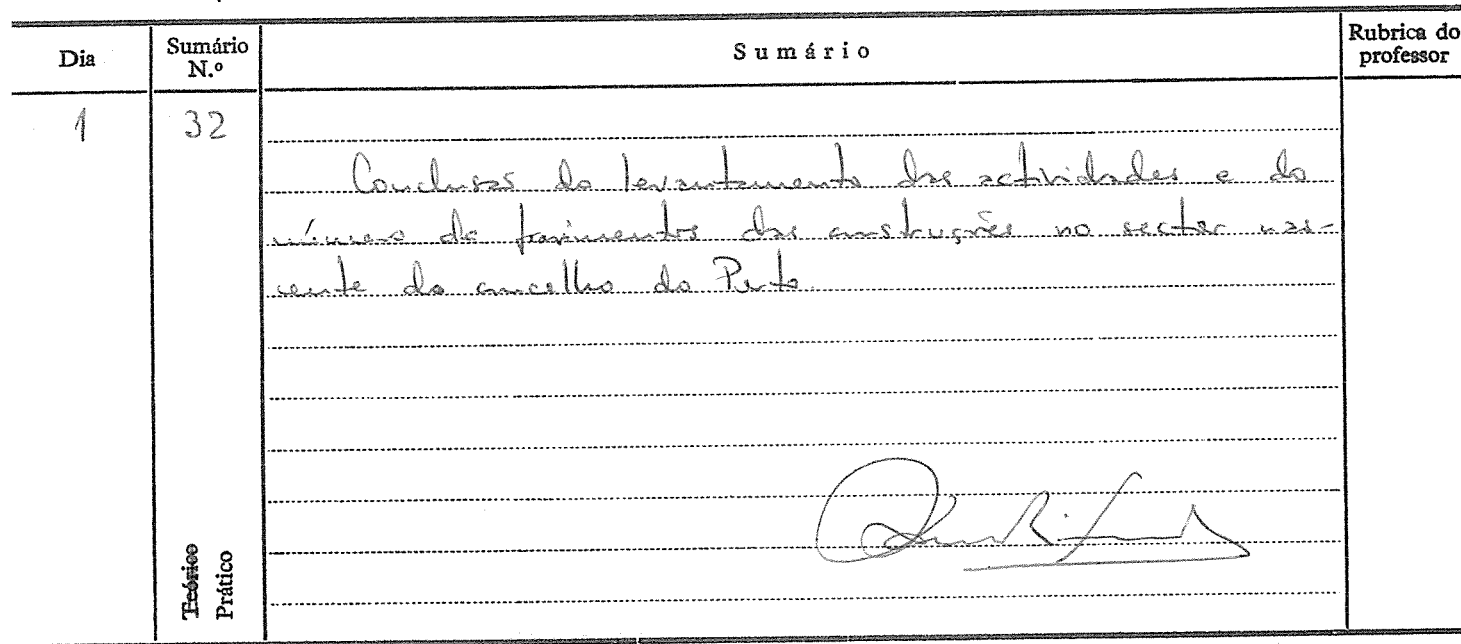 Dia
Sumário N.º
Sumário
Rubrica do professor
1
32
Conclusão do levantamento das actividades e do
número de pavimentos das construções no sector nas-
cente do concelho do Porto.
Teórico
Prático